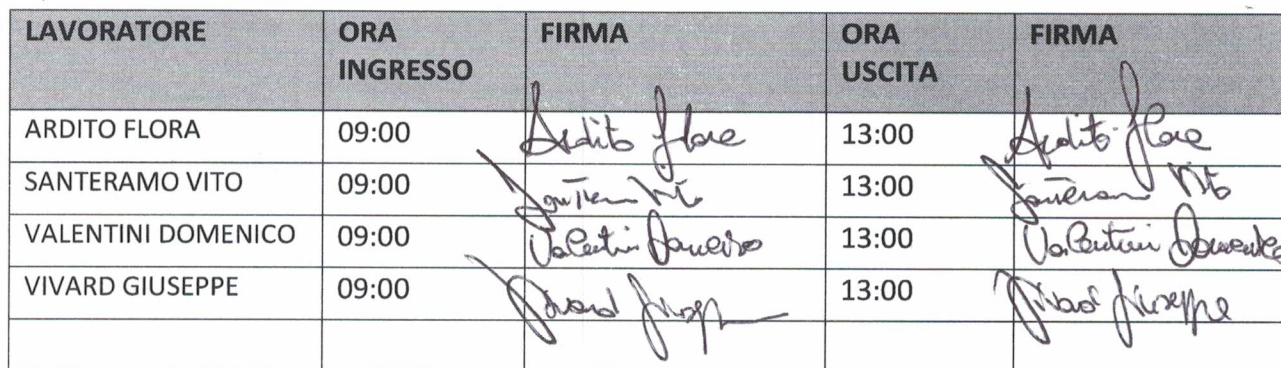 LAVORATORE ORA INGRESSO FIRMA ORA USCITA FIRMA
ARDITO FLORA 09:00 Ardito Flora 13:00 Ardito Flora
SANTERAMO VITO 09:00 Vito 13:00 Santeramo Vito
VALENTINI DOMENICO 09:00 Valentini Domenico 13:00 Valentini Domenico
VIVARD GIUSEPPE 09:00 Vivard 13:00 Vivard Giuseppe